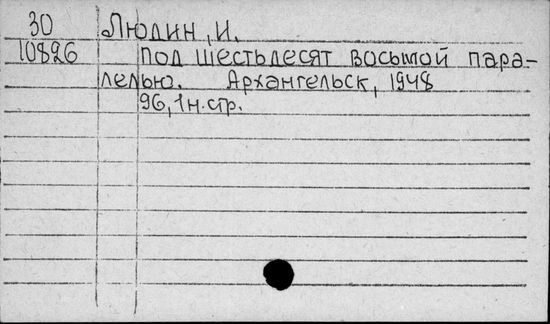 30 Людин, И.
10826 Под шестьдесят восьмой пара-
лелью. Архангельск, 1948
96, 1 н. стр.